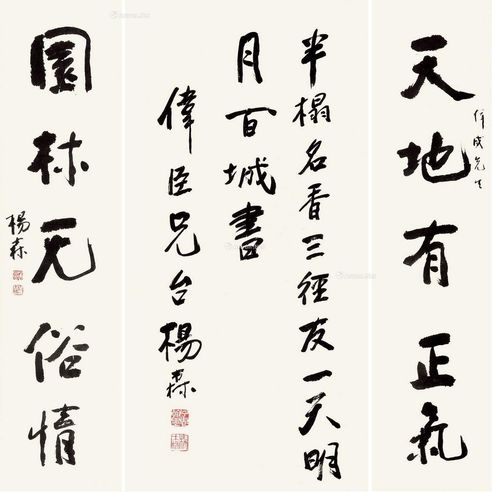 天地有正氣
仔成先生
半榻名香三徑友一天明
月百城書
偉臣兄台楊森
園林无俗情
楊森